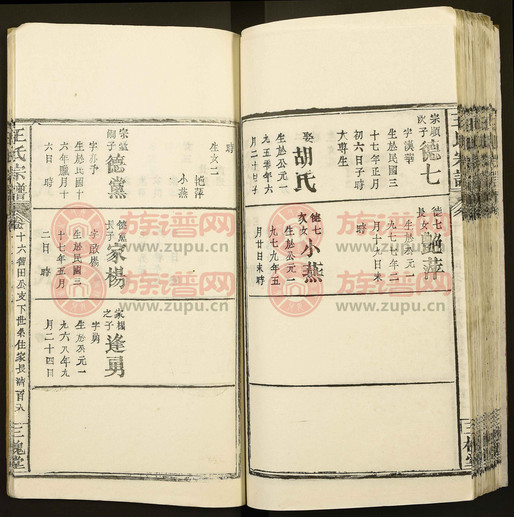 宗順
次子
德七
字漢華
生於民國三
十七年正月
初六日子時
大尊生
娶胡氏
生於公元一
九五零年六
月二十
時
德七
長女
艷萍
生於公元一
九七四年二
時
德七
次女
小燕
生於公元一
九七九年五
月廿日未時
時
生女二
艷萍
小燕
德黨
生於民國十
六年臘月十
六日 時
德黨
長子
家楊
字啟
生於民國三
十七年五月
二日 時
家楊
之子
逢勇
字勇
生於公元一
九六八年九
月二十四日
王氏宗譜
三槐堂
族谱网
www.zupu.cn
族谱网
www.zupu.cn